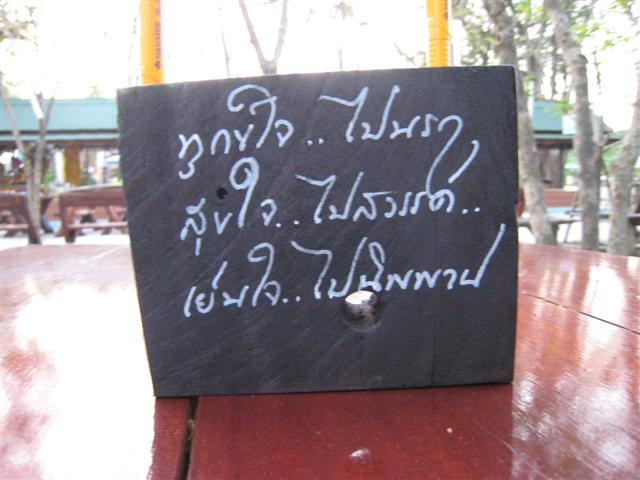 ทุกข์ใจ..ไปนรก,
สุขใจ..ไปสวรรค์..
เย็นใจ..ไปนิพพาน